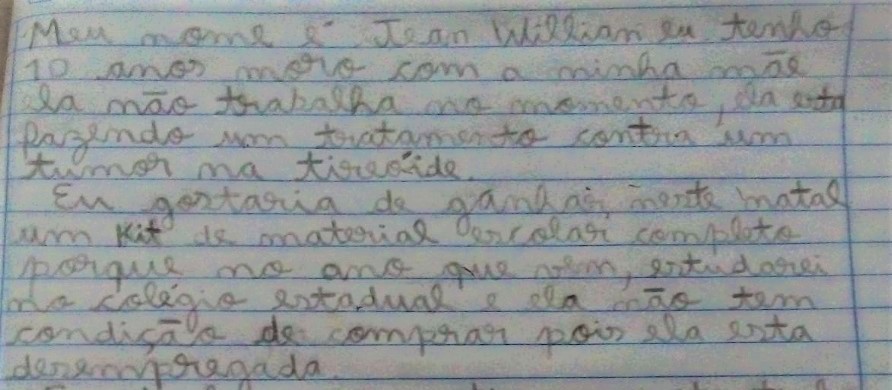 Meu nome é Jean Willian eu tenho
10 anos moro com a minha mãe
ela não trabalha no momento, ela esta
fazendo um tratamento contra um
tumor na tireóide.
Eu gostaria de ganhar, neste natal
um Kit de material escolar, completo
porque no ano que vem, estudarei
no colégio estadual e ela não tem
condição de comprar pois ela esta
desempregada.